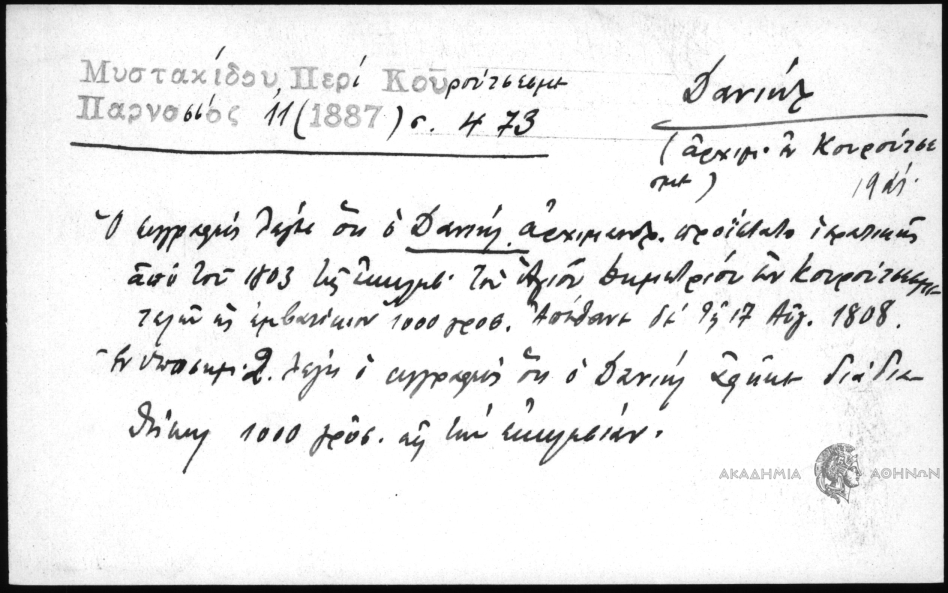 Μυστακίδου, Περί Κουρούτσεσμε
Παρνασσός 11 (1887) σ. 473
Δανιήλ
(ἀρχιμ. ἐν Κουρούτσε
σμε)
19ος
Ὁ συγγραφεύς λέγει ὅτι ὁ Δανιήλ ἀρχιμανδρ. προΐστατο ἱερατικῶς
ἀπό τοῦ 1803 τῆς ἐκκλησ. τοῦ Ἁγίου Δημητρίου ἐν Κουρούτσεσμε
τελῶν ὡς ἐμβατίκιον 1000 γροσ. Ἀπέθανε δέ τῇ 17 Αὐγ. 1808.
Ἐν ὑποσημ. 2. λέγει ὁ συγγραφεύς ὅτι ὁ Δανιήλ ἀφῆκε διά δια
θήκης 1000 γρόσ. εἰς τήν ἐκκλησίαν.
ΑΚΑΔΗΜΙΑ ΑΘΗΝΩΝ